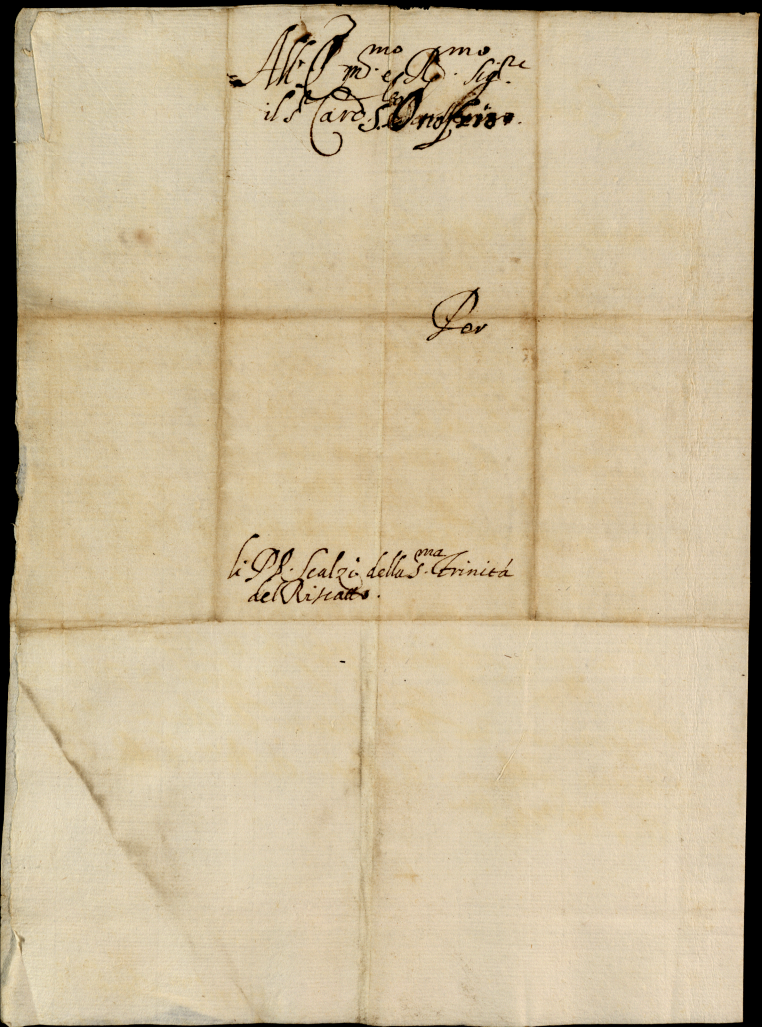 All' Em.mo e R.mo Sig.re
il S.r Card. S. Onofrio.
Per
li PP. Scalzi della S.ma Trinità
del Riscatto.